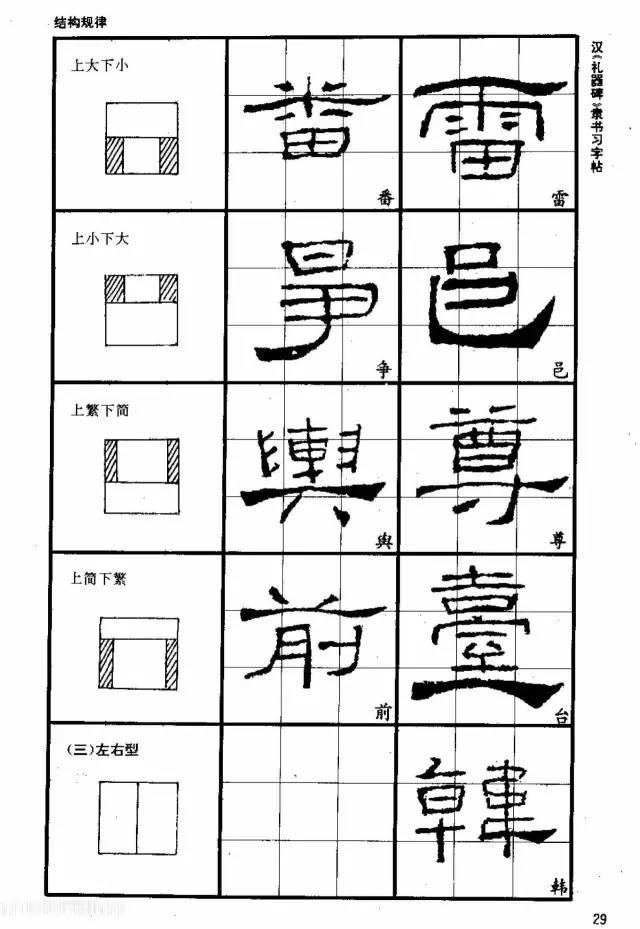 结构规律
汉《礼器碑》隶书习字帖
上大下小
番 雷
番 雷
上小下大
爭 邑
争 邑
上繁下简
輿 尊
舆 尊
上简下繁
前 臺
前 台
(三)左右型
韓
韩
29